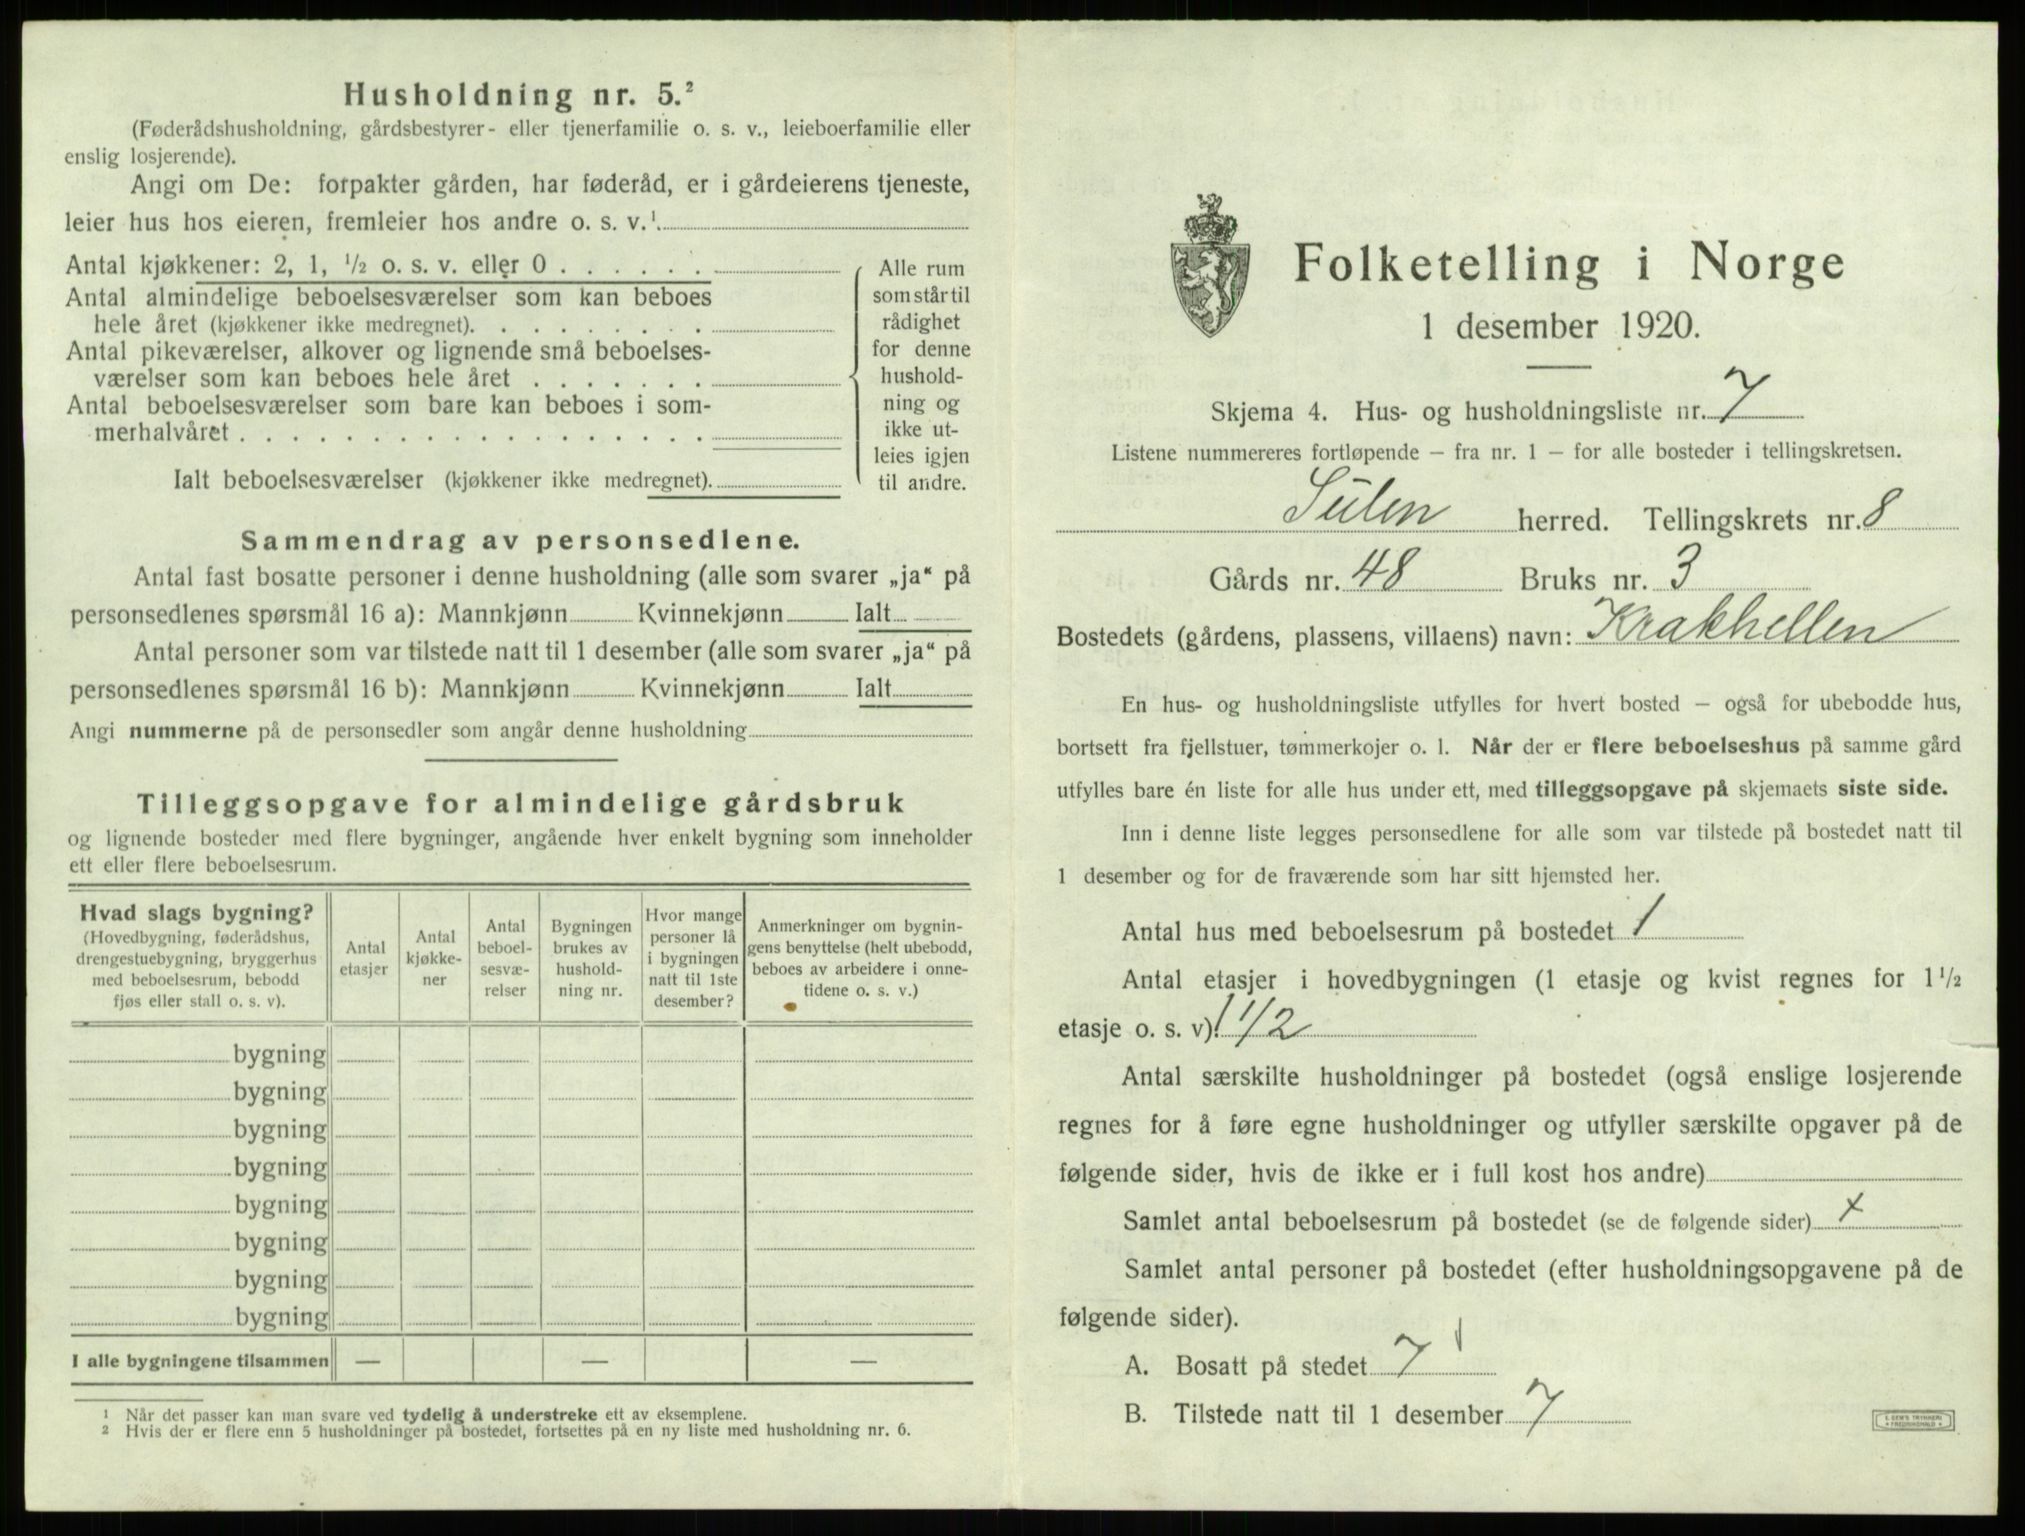 Husholdning nr. 5.²
(Føderådshusholdning, gårdsbestyrer- eller tjenerfamilie o. s. v., leieboerfamilie eller
enslig losjerende).
Angi om De: forpakter gården, har føderåd, er i gårdeierens tjeneste,
leier hus hos eieren, fremleier hos andre o. s. v.¹
Antal kjøkkener: 2, 1, ½ o. s. v. eller 0 . . . . . .
Antal almindelige beboelsesværelser som kan beboes
hele året (kjøkkener ikke medregnet). . . . . . . . .
Antal pikeværelser, alkover og lignende små beboelses-
værelser som kan beboes hele året . . . . . . .
Antal beboelsesværelser som bare kan beboes i som-
merhalvåret . . . . . . . . . . . . . . . . . .
Ialt beboelsesværelser (kjøkkener ikke medregnet).
Alle rum
som står til
rådighet
for denne
hushold-
ning og
ikke ut-
leies igjen
til andre.
Sammendrag av personsedlene.
Antal fast bosatte personer i denne husholdning (alle som svarer „ja“ på
personsedlenes spørsmål 16 a): Mannkjønn Kvinnekjønn Ialt
Antal personer som var tilstede natt til 1 desember (alle som svarer „ja“ på
personsedlenes spørsmål 16 b): Mannkjønn Kvinnekjønn Ialt
Angi nummerne på de personsedler som angår denne husholdning
Tilleggsopgave for almindelige gårdsbruk
og lignende bosteder med flere bygninger, angående hver enkelt bygning som inneholder
ett eller flere beboelsesrum.
Hvad slags bygning?
(Hovedbygning, føderådshus,
drengestuebygning, bryggerhus
med beboelsesrum, bebodd
fjøs eller stall o. s. v).
Antal
etasjer
Antal
kjøkke-
ner
Antal
beboel-
sesvæ-
relser
Bygningen
brukes av
hushold-
ning nr.
Hvor mange
personer lå
i bygningen
natt til 1ste
desember?
Anmerkninger om bygnin-
gens benyttelse (helt ubebodd,
beboes av arbeidere i onne-
tidene o. s. v.)
bygning
bygning
bygning
bygning
bygning
bygning
bygning
bygning
I alle bygningene tilsammen — — —
¹ Når det passer kan man svare ved tydelig å understreke ett av eksemplene.
² Hvis der er flere enn 5 husholdninger på bostedet, fortsettes på en ny liste med husholdning nr. 6.
Folketelling i Norge
1 desember 1920.
Skjema 4. Hus- og husholdningsliste nr. 7
Listene nummereres fortløpende – fra nr. 1 – for alle bosteder i tellingskretsen.
Sulen herred. Tellingskrets nr. 8
Gårds nr. 48 Bruks nr. 3
Bostedets (gårdens, plassens, villaens) navn: Krakhellen
En hus- og husholdningsliste utfylles for hvert bosted – også for ubebodde hus,
bortsett fra fjellstuer, tømmerkojer o. l. Når der er flere beboelseshus på samme gård
utfylles bare én liste for alle hus under ett, med tilleggsopgave på skjemaets siste side.
Inn i denne liste legges personsedlene for alle som var tilstede på bostedet natt til
1 desember og for de fraværende som har sitt hjemsted her.
Antal hus med beboelsesrum på bostedet 1
Antal etasjer i hovedbygningen (1 etasje og kvist regnes for 1 ½
etasje o. s. v). 1 1/2
Antal særskilte husholdninger på bostedet (også enslige losjerende
regnes for å føre egne husholdninger og utfyller særskilte opgaver på de
følgende sider, hvis de ikke er i full kost hos andre)
Samlet antal beboelsesrum på bostedet (se de følgende sider) x
Samlet antal personer på bostedet (efter husholdningsopgavene på de
følgende sider).
A. Bosatt på stedet 7
B. Tilstede natt til 1 desember 7